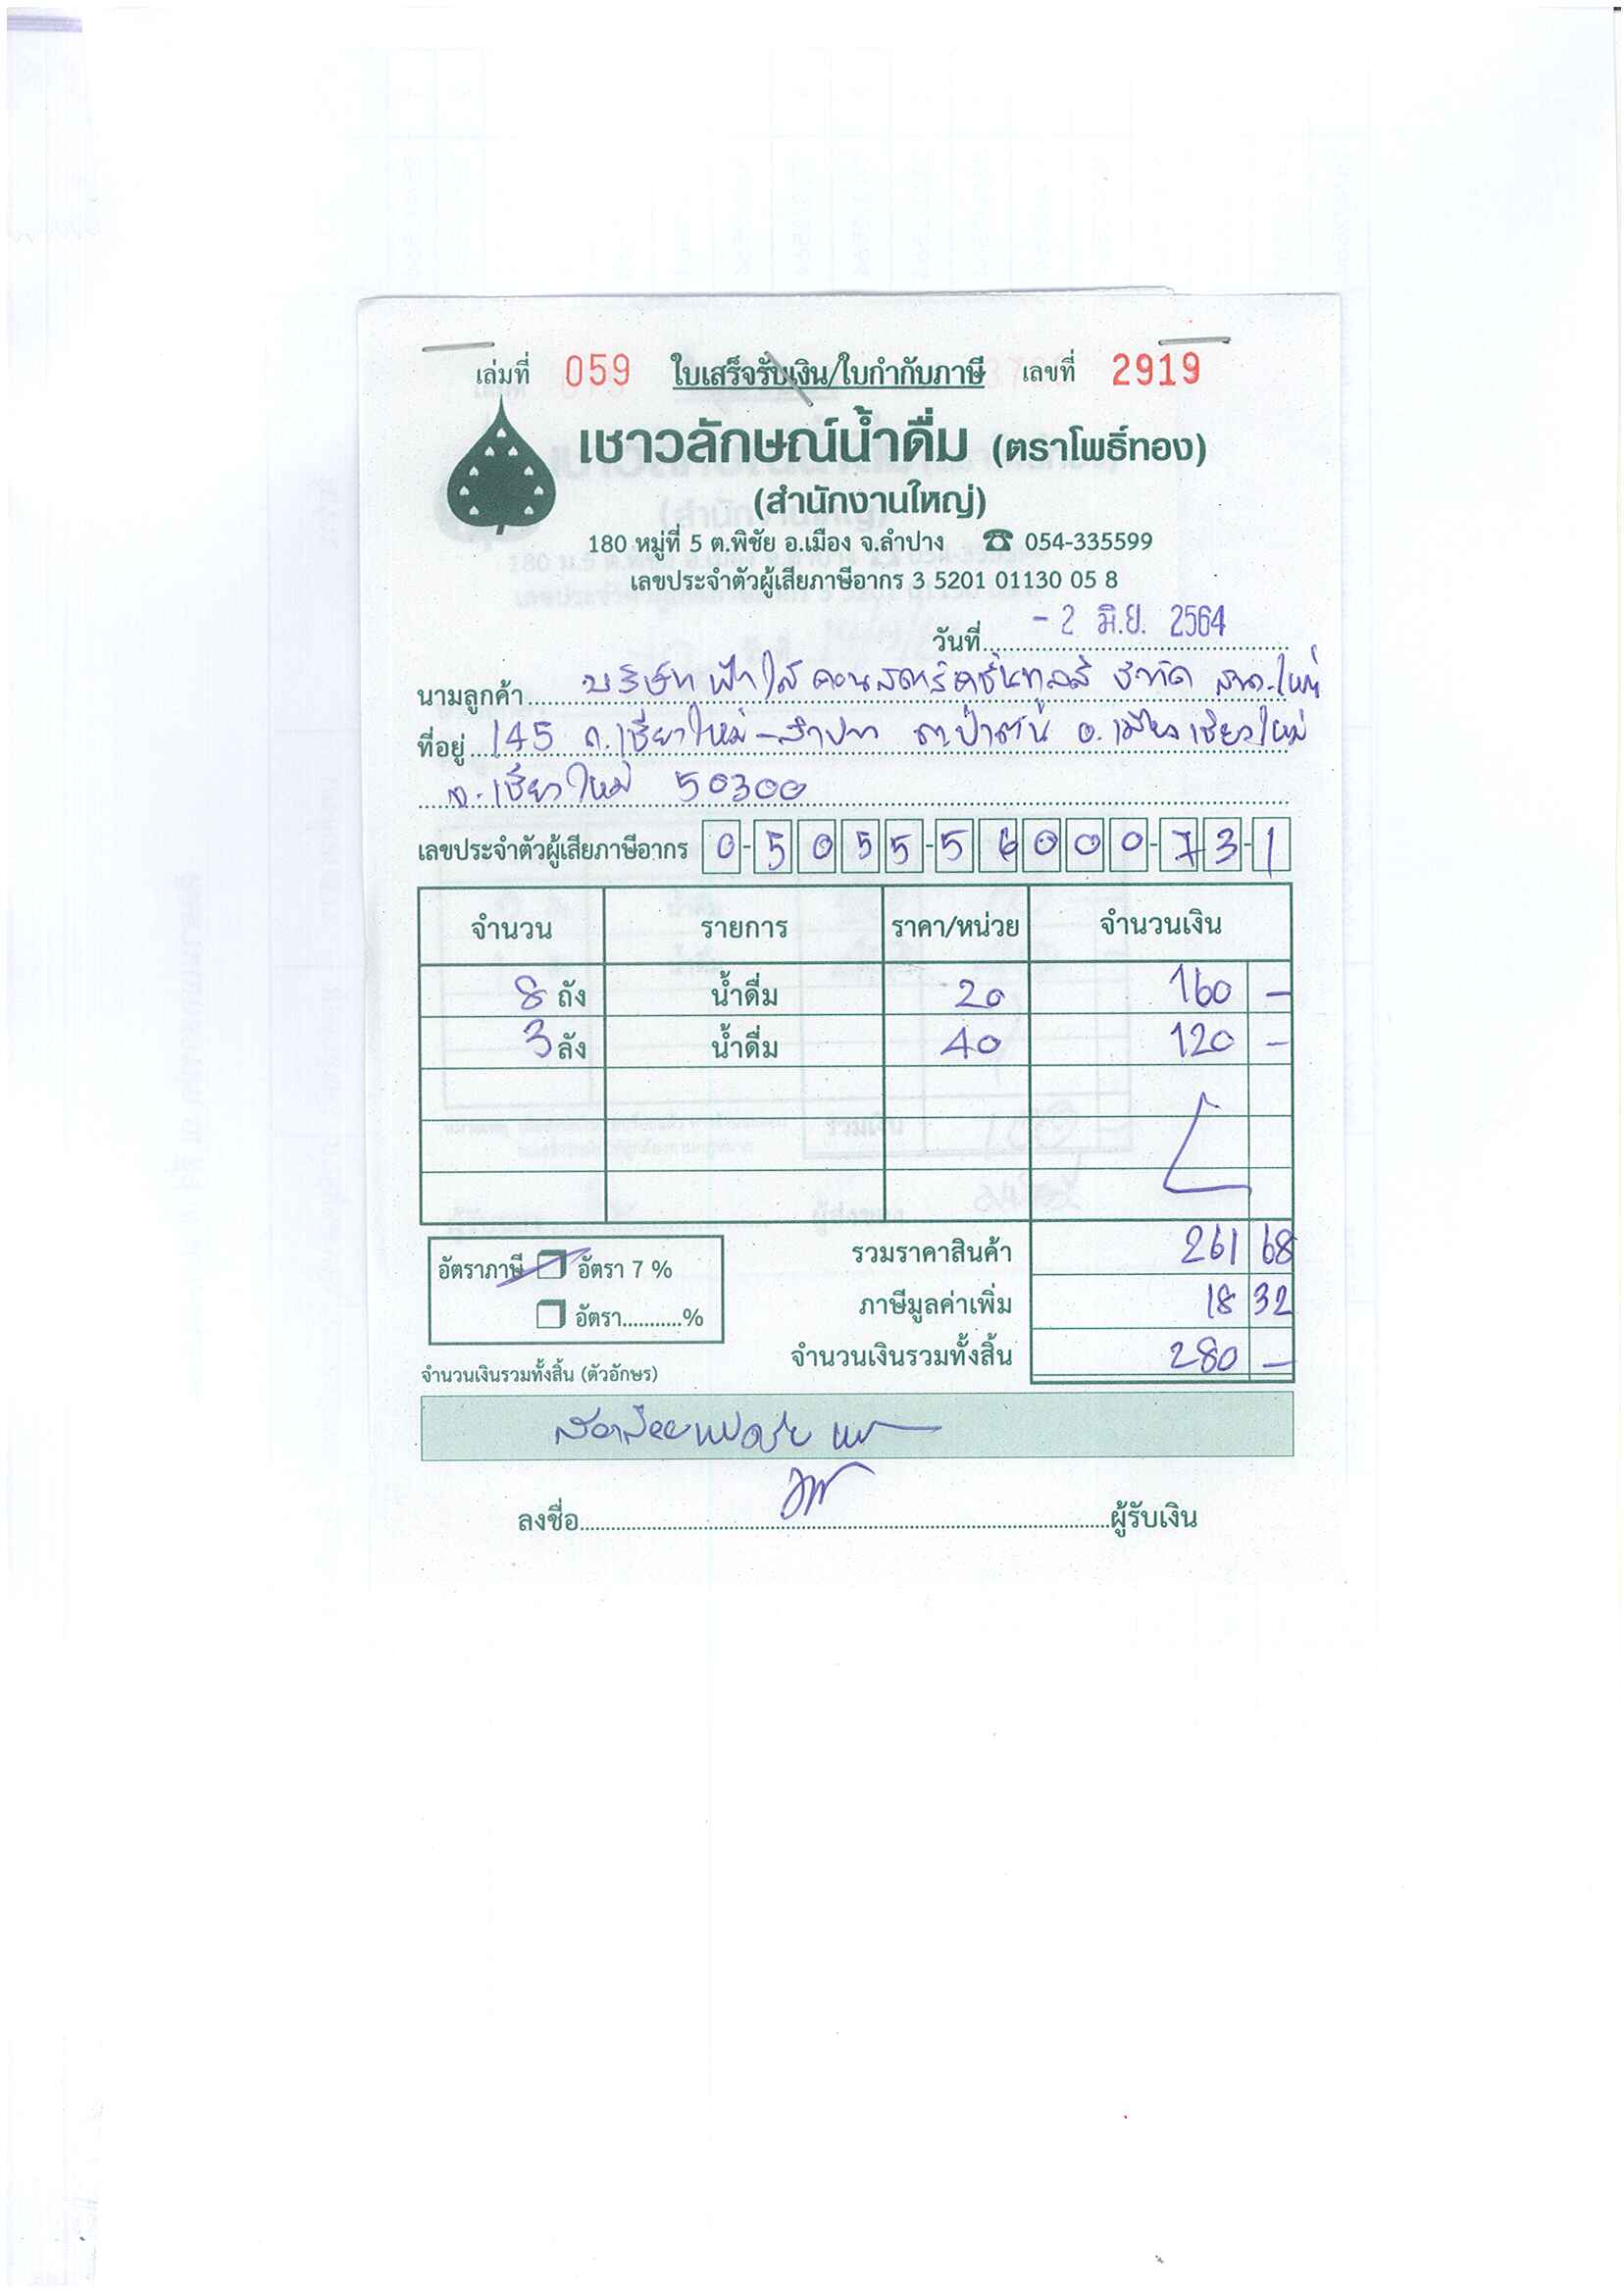 เล่มที่ 059 ใบเสร็จรับเงิน/ใบกำกับภาษี เลขที่ 2919
เชาวลักษณ์น้ำดื่ม (ตราโพธิ์ทอง)
(สำนักงานใหญ่)
180 หมู่ที่ 5 ต.พิชัย อ.เมือง จ.ลำปาง ☎ 054-335599
เลขประจำตัวผู้เสียภาษีอากร 3 5201 01130 05 8
วันที่ - 2 มิ.ย. 2564
นามลูกค้า บริษัท ฟ้าใส คอนสตรัคชั่นทูลส์ จำกัด สนง.ใหญ่
ที่อยู่ 145 ถ.เชียงใหม่-ลำปาง ต.ป่าตัน อ.เมืองเชียงใหม่
จ.เชียงใหม่ 50300
เลขประจำตัวผู้เสียภาษีอากร 0-5055-56000-73-1
จำนวน รายการ ราคา/หน่วย จำนวนเงิน
8 ถัง น้ำดื่ม 20 160 -
3 ลัง น้ำดื่ม 40 120 -
รวมราคาสินค้า 261 68
อัตราภาษี อัตรา 7 %
ภาษีมูลค่าเพิ่ม 18 32
อัตรา...........%
จำนวนเงินรวมทั้งสิ้น 280 -
จำนวนเงินรวมทั้งสิ้น (ตัวอักษร)
สองร้อยแปดสิบ
ลงชื่อ ผู้รับเงิน